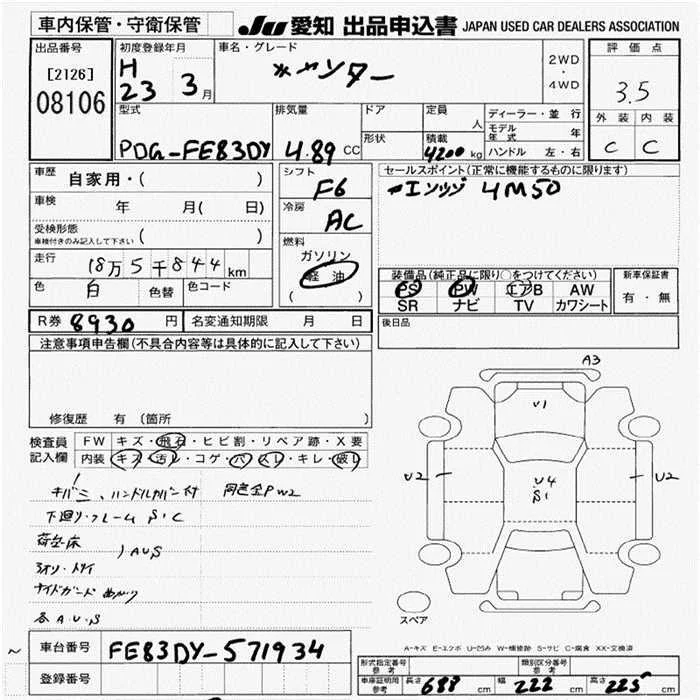 車内保管・守衛保管
JU 愛知 出品申込書 JAPAN USED CAR DEALERS ASSOCIATION
出品番号 初度登録年月 車名・グレード 評価点
[2126] H 2WD
08106 23 3月 キャンター ・ 3.5
4WD
外装 内装
C C
型式 排気量 ドア 定員 人 ディーラー・並行
モデル年式 年
形状 積載 ハンドル 左・右
PDG-FE83DY 4.89 CC 4200 kg
車歴 自家用・( ) シフト F6 セールスポイント(正常に機能するものに限ります)
エンジン 4M50
車検 年 月( 日) 冷房 AC
受検形態 ( )
車検付きのみ記入して下さい
燃料 ガソリン
走行 18万5千844km 軽油
( )
装備品(純正品に限り○をつけてください) 新車保証書
色 白 色替 色コード PS PW エアB AW 有・無
SR ナビ TV カワシート
R券 8930 円 名変通知期限 月 日 後日品
注意事項申告欄(不具合内容等は具体的に記入して下さい)
修復歴 有 (箇所 )
検査員 FW キズ・飛石・ヒビ割・リペア跡・X要
記入欄 内装 キズ・汚レ・コゲ・穴・スレ・キレ・破レ
キバミ、ハンドルカバー付 同色全PW2
下廻り・フレーム S・C
荷台床
AUS
サイドガード
各A.U.S
A3
U1
U2 U4 U2
S1
スペア
A-キズ E-エクボ U-凹み W-補修跡 S-サビ C-腐食 XX-交換済
車台番号 FE83DY-571934
登録番号
形式指定番号 参考 類別区分番号 参考
車庫証明用 参考 長さ 688 cm 幅 222 cm 高さ 225 cm